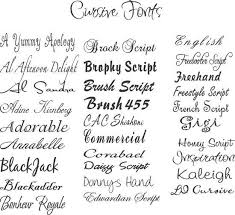 Cursive Fonts
A Yummy Apology
Al Afternoon Delight
Adine Kirnberg
Adorable
Annabelle
BlackJack
Blackadder
Bonheur Royale
Brock Script
Brophy Script
Brush Script
Brush 455
C.A.C. Shishoni
Commercial
Corabael
Daizy Script
Donnys Hand
Edwardian Script
English
Freebooter Script
Freehand
Freestyle Script
French Script
Ginger
Honey Script
Inspiration
Kaleigh
LD Cursive